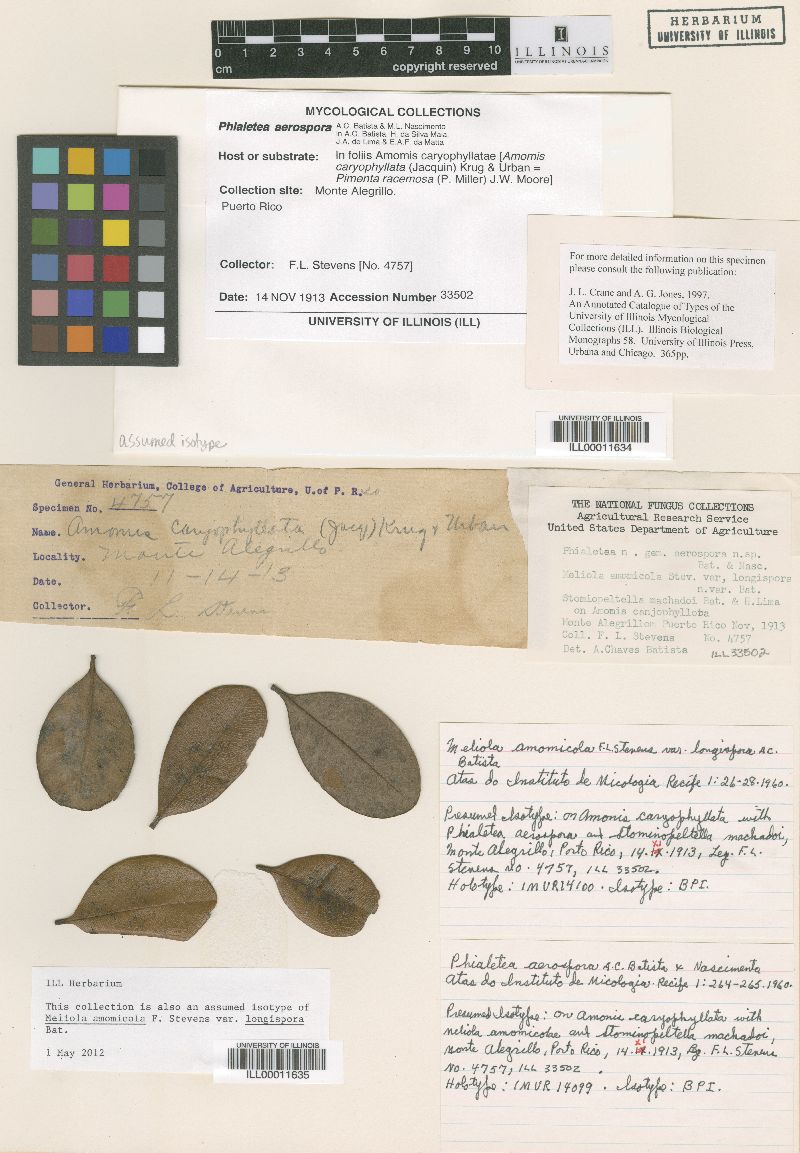 HERBARIUM
UNIVERSITY OF ILLINOIS
0 1 2 3 4 5 6 7 8 9 10
cm
copyright reserved
ILLINOIS
MYCOLOGICAL COLLECTIONS
Phialetea aerospora A.C. Batista & M.L. Nascimento
in A.C. Batista, H. da Silva Maia,
J.A. de Lima & E.A.F. da Matta
Host or substrate: In foliis Amomis caryophyllatae [Amomis
caryophyllata (Jacquin) Krug & Urban =
Pimenta racemosa (P. Miller) J.W. Moore]
Collection site: Monte Alegrillo.
Puerto Rico
Collector: F.L. Stevens [No. 4757]
Date: 14 NOV 1913 Accession Number 33502
UNIVERSITY OF ILLINOIS (ILL)
For more detailed information on this specimen
please consult the following publication:
J. L. Crane and A. G. Jones, 1997.
An Annotated Catalogue of Types of the
University of Illinois Mycological
Collections (ILL). Illinois Biological
Monographs 58. University of Illinois Press,
Urbana and Chicago. 365pp.
assumed isotype
UNIVERSITY OF ILLINOIS
ILL00011634
General Herbarium, College of Agriculture, U. of P. R.
Specimen No. 4757
Name. Amomis caryophyllata (Jacq) Krug & Urban
Locality. Monte Alegrillo
Date. 11-14-13
Collector. F. L. Stevens
THE NATIONAL FUNGUS COLLECTIONS
Agricultural Research Service
United States Department of Agriculture
Phialetea n . gen. aerospora n.sp.
Bat. & Nasc.
Meliola amomicola Stev. var, longispora
n.var. Bat.
Stomiopeltella machadoi Bat. & H.Lima
on Amomis canjophyllota
Monte Alegrillom Puerto Rico Nov, 1913
Coll. F. L. Stevens No. 4757
Det. A.Chaves Batista ILL 33502
Meliola amomicola F.L. Stevens var. longispora A.C.
Batista
Atas do Instituto de Micologia Recife 1:26-28.1960.
Presumed Isotype: on Amomis caryophyllata with
Phialetea aerospora and Stominopeltella machadoi,
Monte Alegrillo, Porto Rico, 14.XI.1913, Leg. F.L.
Stevens no. 4757, ILL 33502.
Holotype: IMUR 14100. Isotype: BPI.
Phialetea aerospora A.C. Batista & Nascimenta
Atas do Instituto de Micologia Recife 1:264-265.1960.
Presumed Isotype: on Amomis caryophyllata with
meliola amomicolae and Stominopeltella machadoi,
Monte Alegrillo, Porto Rico, 14.XI.1913, Leg. F.L. Stevens
No. 4757, ILL 33502 .
Holotype: IMUR 14099. Isotype: BPI.
ILL Herbarium
This collection is also an assumed isotype of
Meliola amomicola F. Stevens var. longispora
Bat.
1 May 2012
UNIVERSITY OF ILLINOIS
ILL00011635